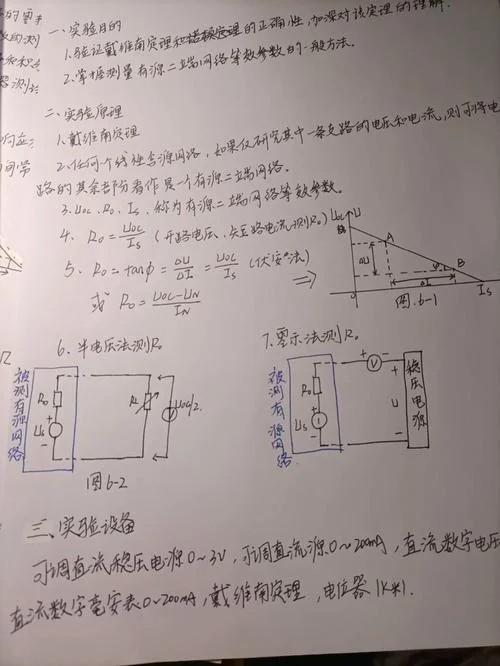 一、实验目的
1.验证戴维南定理和诺顿定理的正确性,加深对该定理的理解.
2.掌握测量有源二端网络等效参数的一般方法。
二、实验原理
1.戴维南定理
2.任何个线性含源网络,如果仅研究其中一条支路的电压和电流,则可将电
路的其余部分看作是一个有源二端网络。
3.Uoc、Ro、Is,称为有源二端网络等效参数。
4. Ro=Uoc/Is(开路电压、短路电流测Ro)
5. Ro=tanφ=ΔU/ΔI=Uoc/Is(伏安法)
或 Ro=(Uoc-UN)/IN
U
Uoc
A
B
ΔU
φ
ΔI
0
Is
图6-1
6.半电压法测Ro
被测有源网络
Ro
Us
+
-
RL
Uoc/2
图6-2
7.零示法测Ro
被测有源网络
Ro
Us
+
-
+ V -
+
U
-
稳压电源
三、实验设备
可调直流稳压电源0~3V,可调直流源0~200mA,直流数字电压
直流数字毫安表0~200mA,戴维南定理,电位器1K×1.